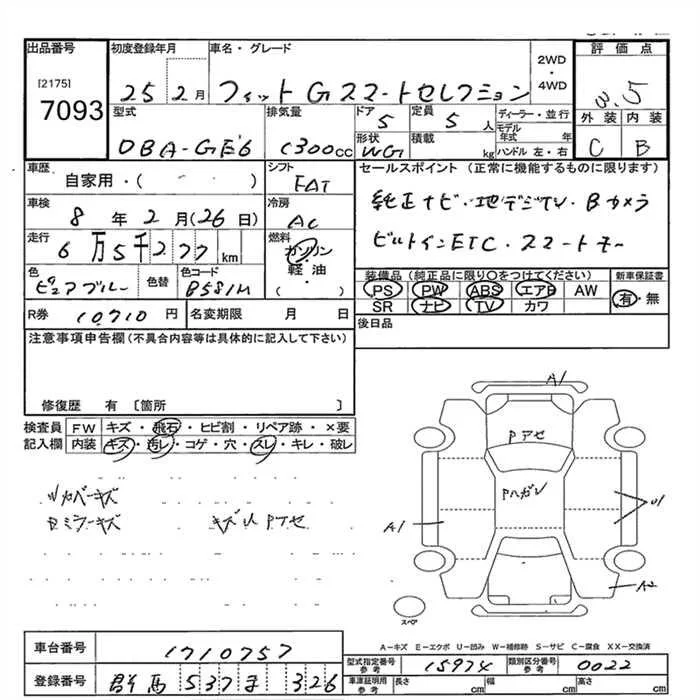 出品番号 初度登録年月 車名・グレード 2WD・4WD 評価点
[2175]
7093
25年2月 フィット G スマートセレクション 3.5
型式 排気量 ドア 定員 ディーラー・並行 外装 内装
DBA-GE6 1300cc 5 5人 モデル年式 年 C B
形状 積載 kg ハンドル 左・右
WG
車歴 シフト セールスポイント (正常に機能するものに限ります)
自家用・( ) FAT
純正ナビ・地デジTV・Bカメラ
車検 冷房
8年2月(26日) AC
ビルトインETC・スマートキー
走行 燃料
6万5千277km ガソリン・軽油( )
装備品 (純正品に限り○をつけてください) 新車保証書
色 色替 色コード
ピュアブルー B581M
PS PW ABS エアB AW 有・無
SR ナビ TV カワ
R券 10710円 名変期限 月 日 後日品
注意事項申告欄 (不具合等は具体的に記入して下さい)
修復歴 有 [箇所 ]
検査員記入欄 FW キズ・飛石・ヒビ割・リペア跡・×要
内装 キズ・汚レ・コゲ・穴・スレ・キレ・破レ
A1
Pアセ
Pハガレ
U1
A1
A2
Rミラーキズ キズ U Pアセ
スペア
A-キズ E-エクボ U-凹み W-補修跡 S-サビ C-腐食 XX-交換済
車台番号 1710757
型式指定番号 参考 15974 類別区分番号 参考 0022
登録番号 群馬 537 ま 326
車庫証明用 参考 長さ cm 幅 cm 高さ cm